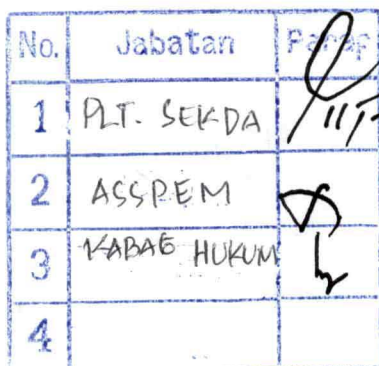 No. Jabatan Paraf
1 PLT. SEKDA
2 ASSPEM
3 KABAG HUKUM
4